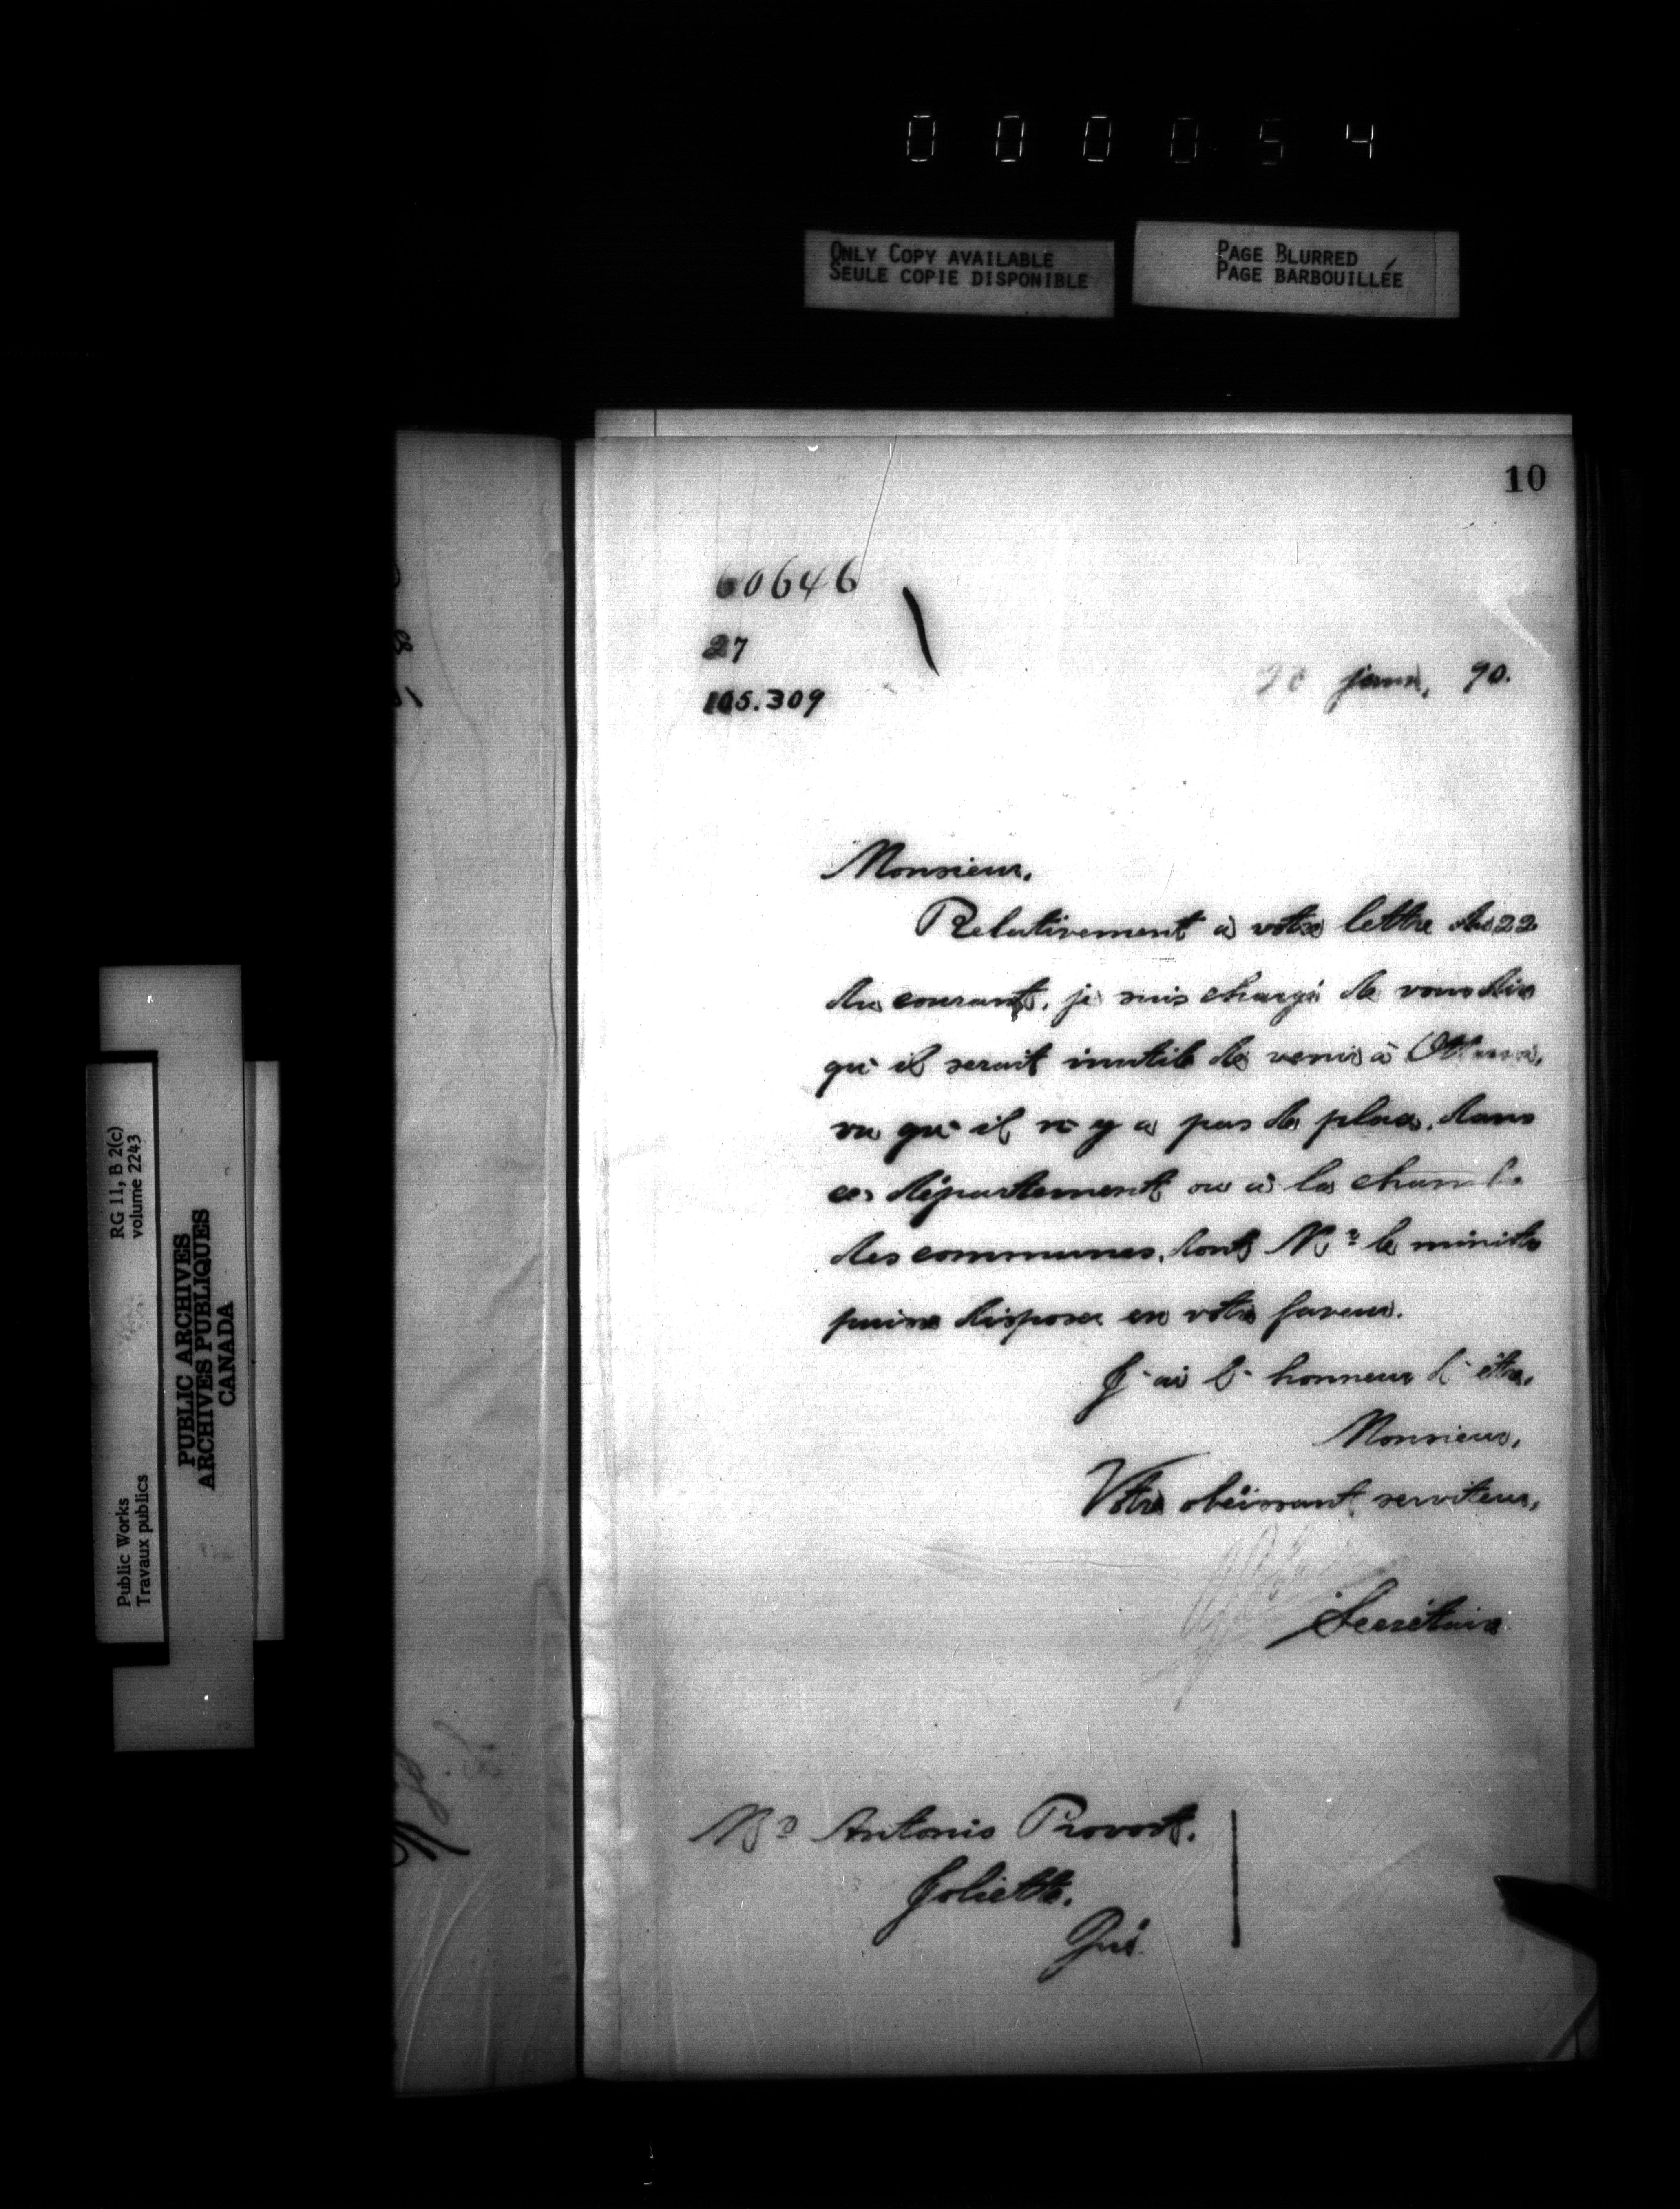 000054
ONLY COPY AVAILABLE
SEULE COPIE DISPONIBLE
PAGE BLURRED
PAGE BARBOUILLÉE
10
60646
27
105.309
janv, 90.
Monsieur,
Relativement à votre lettre du 22
du courant, je suis chargé de vous dire
qu'il serait inutile de venir à Ottawa,
vu qu'il n'y a pas de place, dans
ce département ou à la chambre
des communes, dont Mr le ministre
puisse disposer en votre faveur.
J'ai l'honneur d'être,
Monsieur,
Votre obéissant serviteur,
Secrétaire
Mr Antonio Provost,
Joliette,
Qué
RG 11, B 2(c)
volume 2243
PUBLIC ARCHIVES
ARCHIVES PUBLIQUES
CANADA
Public Works
Travaux publics